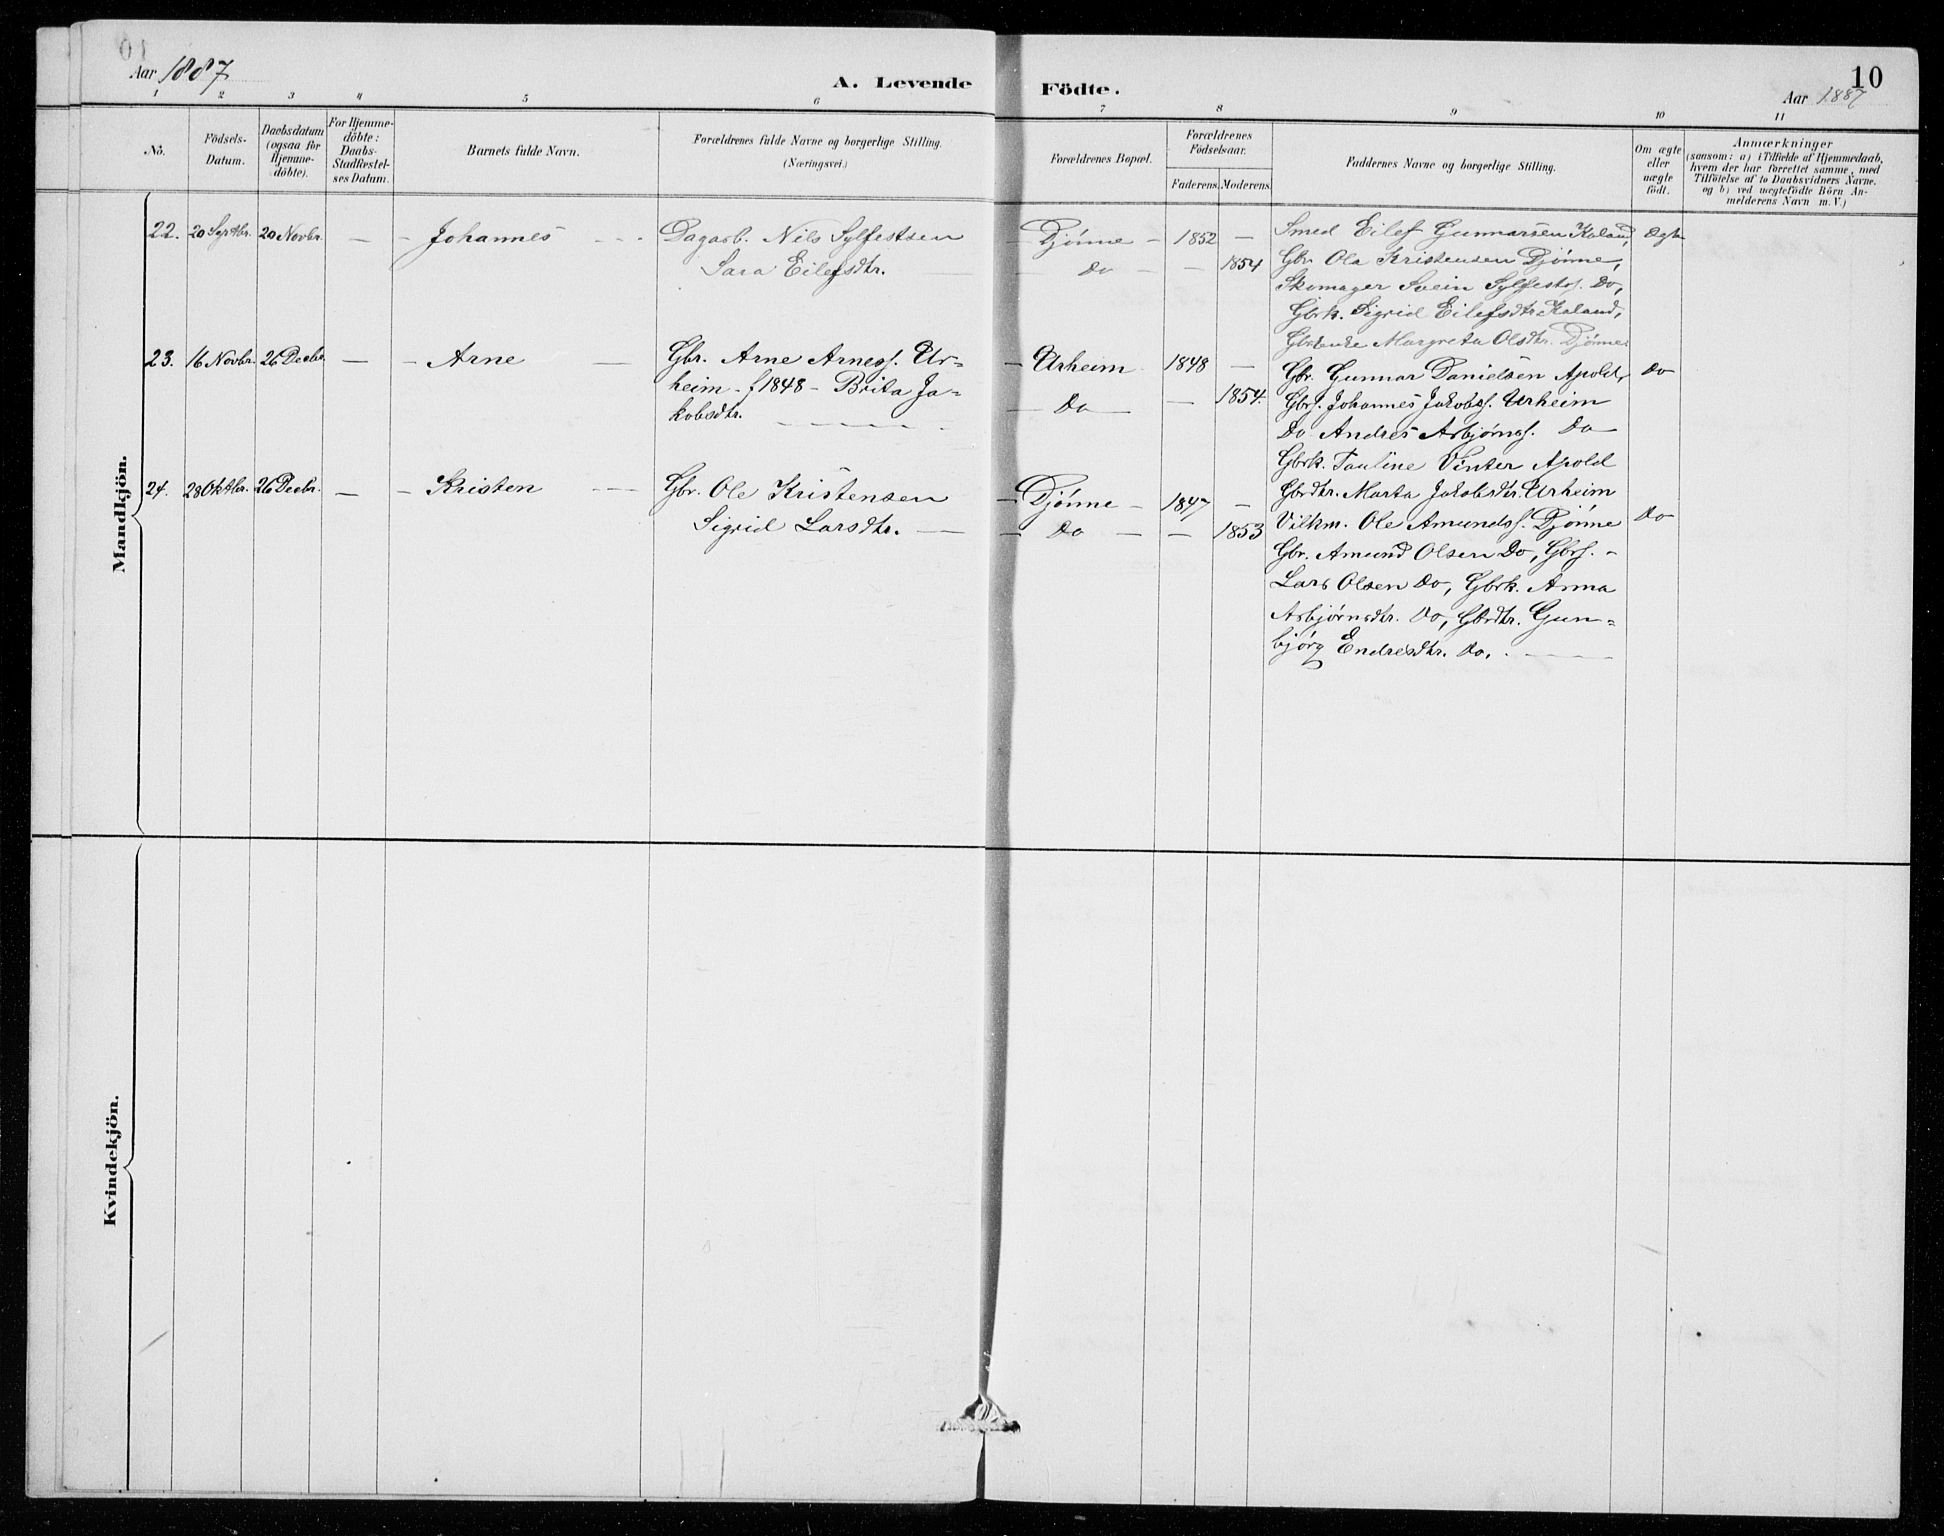 Aar 1887
A. Levende Födte.
10
Aar 1887
1 2 3 4 5 6 7 8 9 10 11
No.
Födsels-Datum.
Daabsdatum (ogsaa for Hjemme-döbte).
For Hjemme-döbte: Daabs-Stadfæstel-ses Datum.
Barnets fulde Navn.
Forældrenes fulde Navne og borgerlige Stilling.
(Næringsvei.)
Forældrenes Bopæl.
Forældrenes Födselsaar.
Faderens. Moderens.
Faddernes Navne og borgerlige Stilling.
Om ægte eller uægte födt.
Anmærkninger
(saasom: a) i Tilfælde af Hjemmedaab,
hvem der har forrettet samme, med
Tilföielse af to Daabsvidners Navne.
og b) ved uægtefödte Börn An-
melderens Navn m. V.)
Mandkjön.
22. 20 Septbr. 20 Novbr. — - Johannes - - - Dagarb. Nils Sylfestsen - Djønne - 1852 — Smed Eilef Gunnarsen Kaland, Ægte
Sara Eilefsdtr. — Do — — 1854 Gbr. Ola Kristensen Djønne,
Skomager Svein Sylfests. Do,
Gbrk. Sigrid Eilefsdtr. Kaland,
Margreta Olsdtr. Djønne.
23. 16 Novbr. 26 Decbr. — - Arne — Gbr. Arne Arness. Ur- - Urheim 1848 — Gbr. Gunnar Danielsen Apold, Do
heim - f 1848 - Brita Ja- — Do — — 1854. Gbrs. Johannes Jakobss. Urheim
kobsdtr. Do Andres Asbjørnss. Do
Gbrk. Pauline Vinter Apold
Gbrdtr. Marta Jakobsdtr. Urheim
24. 28 Oktbr. 26 Decbr. — - Kristen - — Gbr. Ole Kristensen - Djønne - 1847 -
Sigrid Larsdtr. — - Do — — 1853 Vilkm. Ole Amundss. Djønne Do
Gbr. Amund Olsen Do, Gbrs. -
Lars Olsen Do, Gbrk. Anna
Asbjørnsdtr. Do, Gbrdtr. Gun-
bjørg Endresdtr. Do.
Kvindekjön.